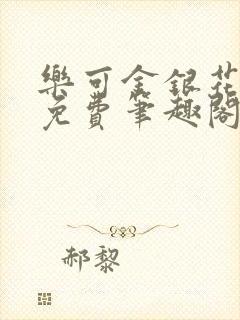 樂可金銀花
免費筆趣閣
郝黎